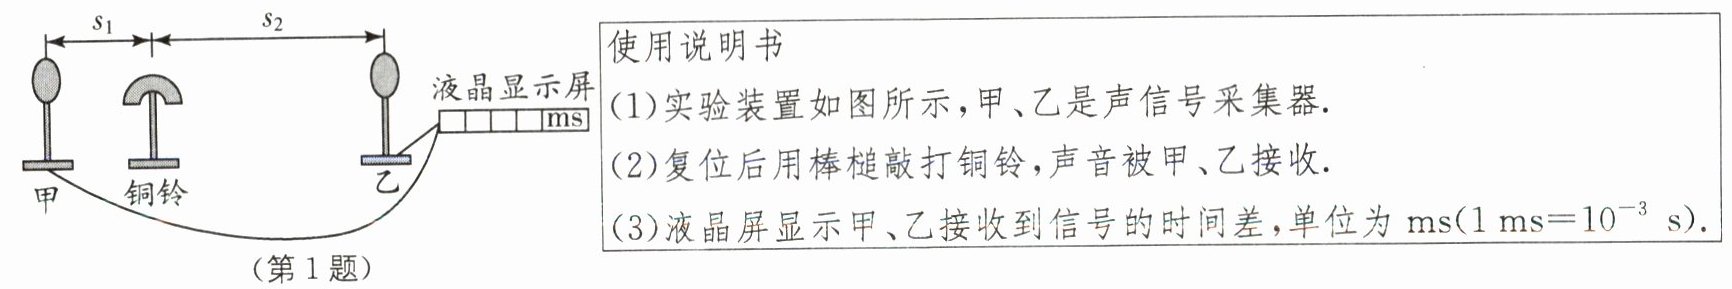 s₁
s₂
液晶显示屏
ms
甲
铜铃
乙
(第1题)
使用说明书
(1)实验装置如图所示,甲、乙是声信号采集器.
(2)复位后用棒槌敲打铜铃,声音被甲、乙接收.
(3)液晶屏显示甲、乙接收到信号的时间差,单位为 ms(1 ms=10⁻³ s).